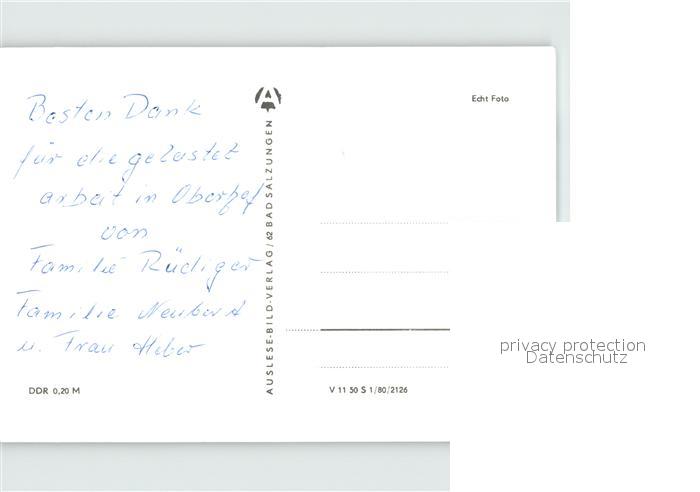 Besten Dank
für die gelastet
arbeit in Oberhof
von
Familie Rüdiger
Familie Neubert
u. Frau Heber
DDR 0,20 M
AUSLESE-BILD-VERLAG/62 BAD SALZUNGEN
Echt Foto
V 11 50 S 1/80/2126
privacy protection
Datenschutz